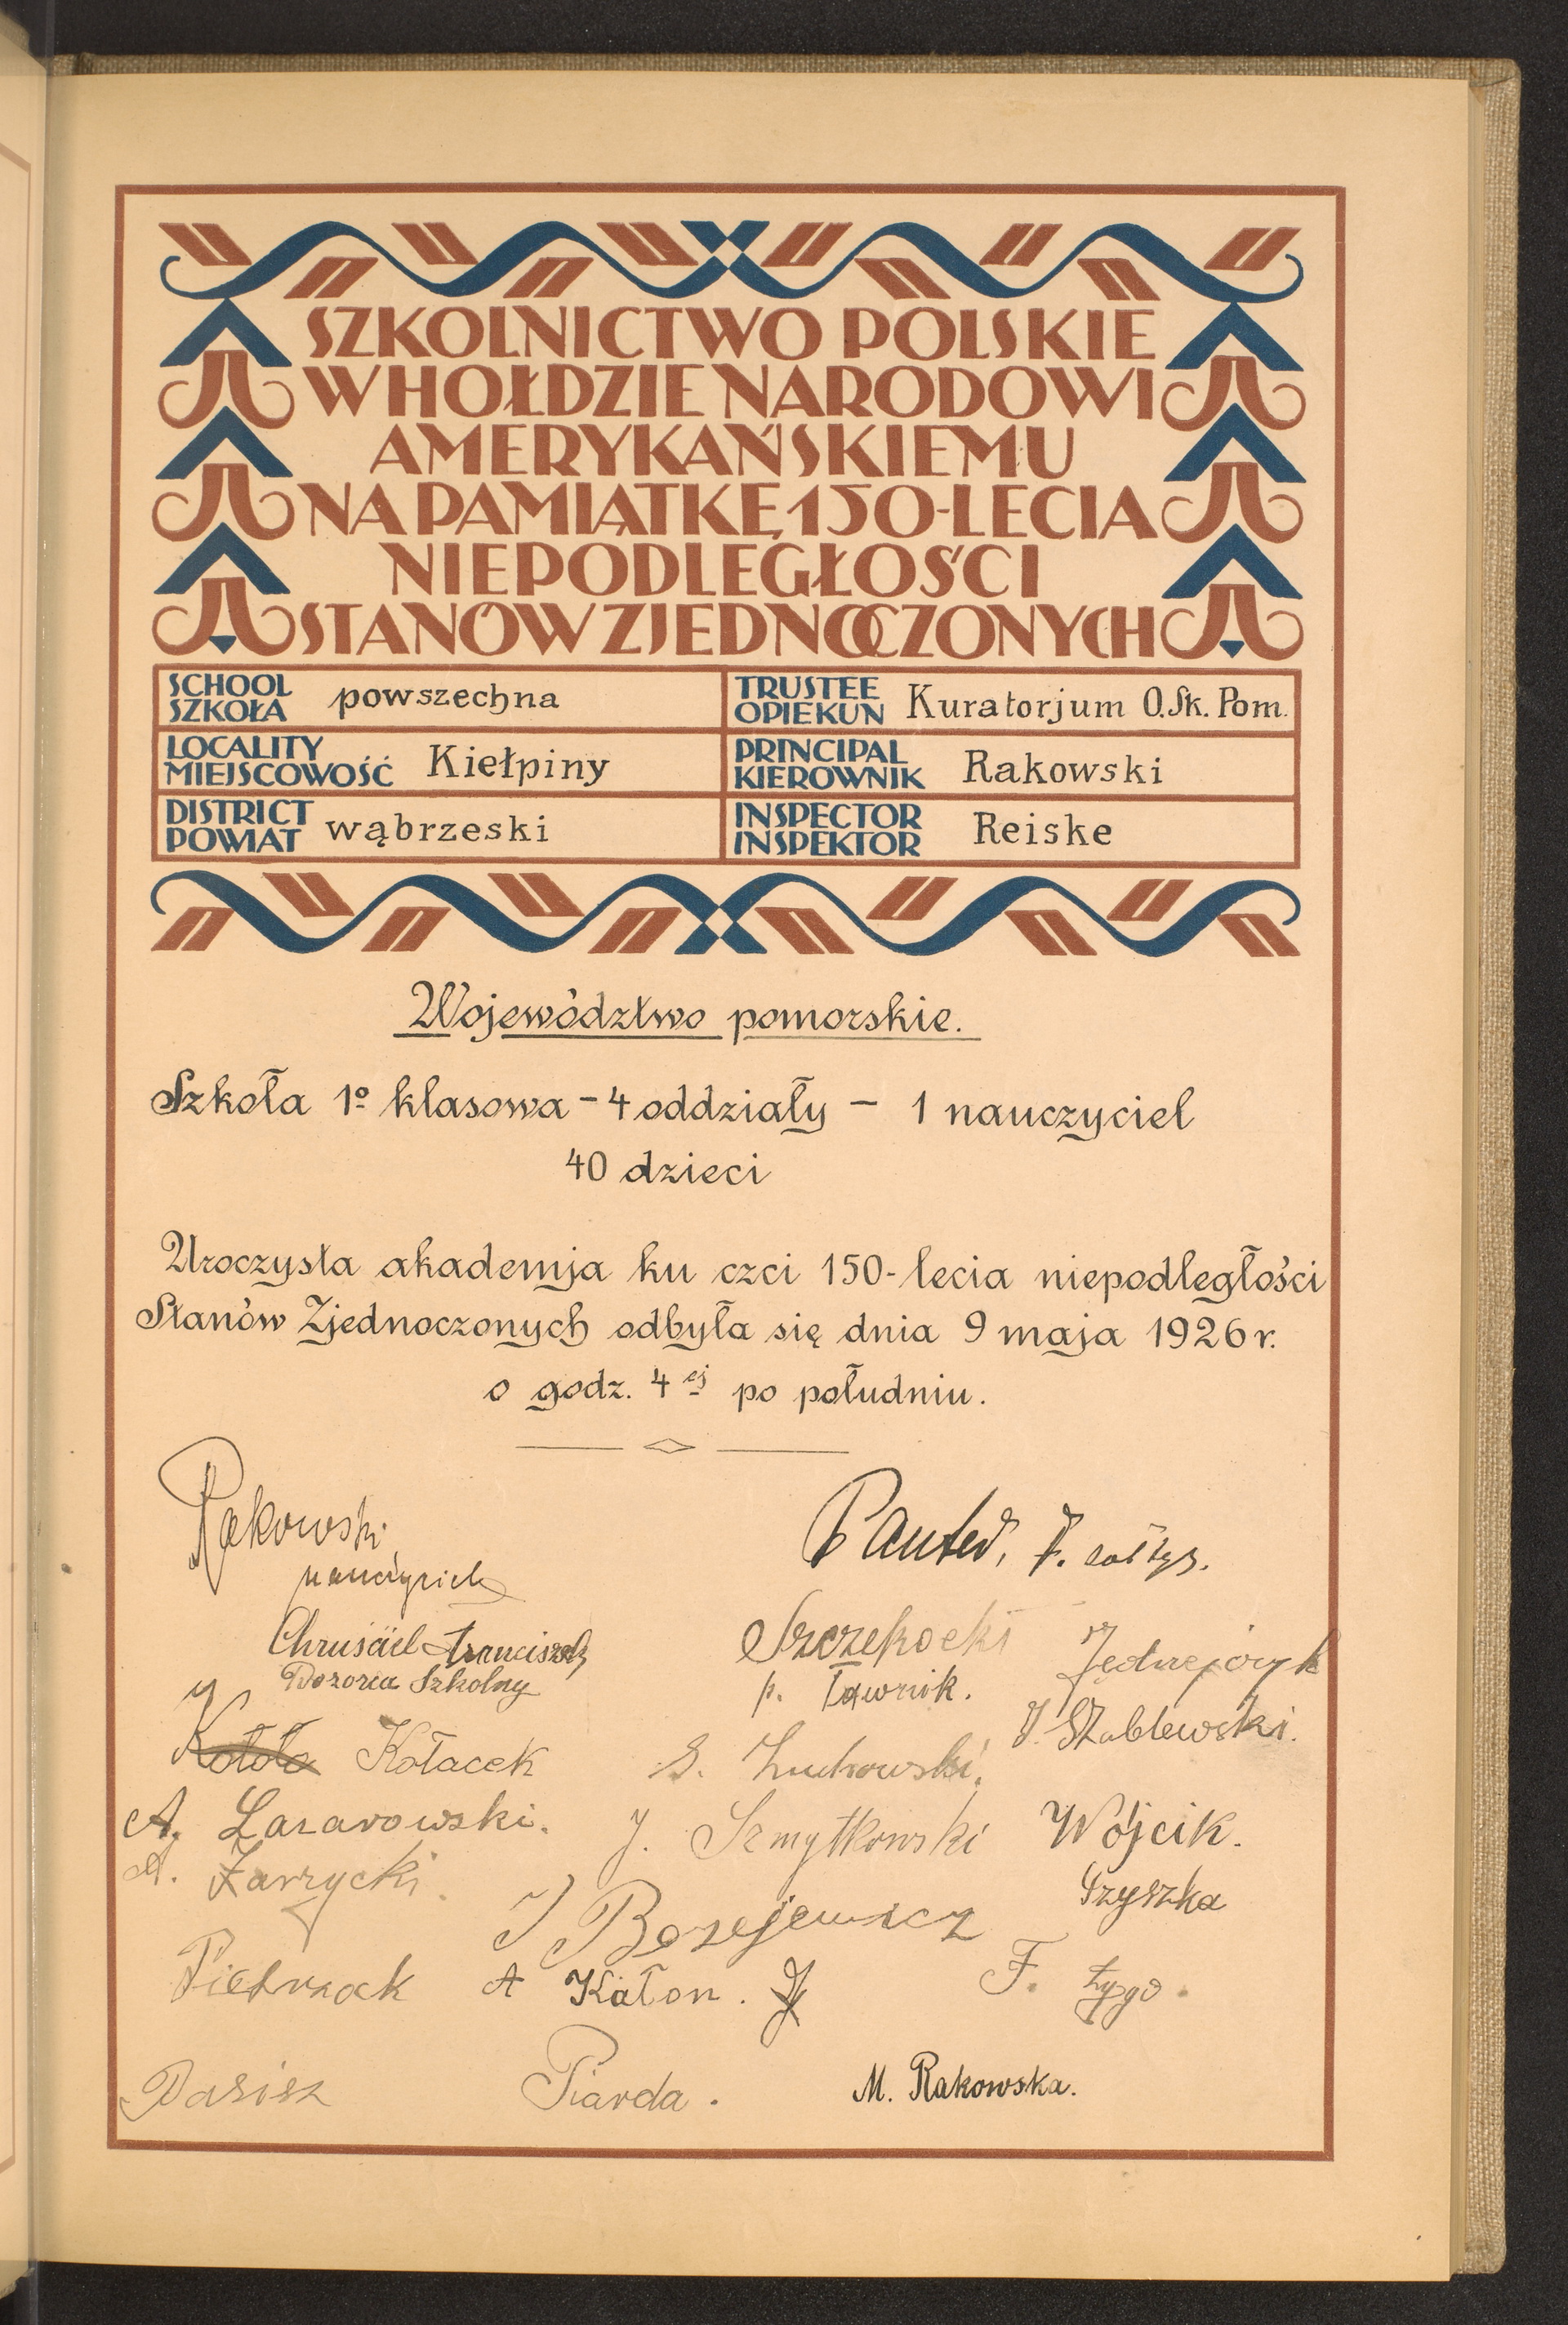 SZKOLNICTWO POLSKIE
W HOŁDZIE NARODOWI
AMERYKAŃSKIEMU
NA PAMIĄTKĘ 150-LECIA
NIEPODLEGŁOŚCI
STANÓW ZJEDNOCZONYCH
SCHOOL
SZKOŁA powszechna
TRUSTEE
OPIEKUN Kuratorjum O.Sk. Pom.
LOCALITY
MIEJSCOWOŚĆ Kiełpiny
PRINCIPAL
KIEROWNIK Rakowski
DISTRICT
POWIAT wąbrzeski
INSPECTOR
INSPEKTOR Reiske
Województwo pomorskie.
Szkoła 1º klasowa - 4 oddziały - 1 nauczyciel
40 dzieci
Uroczysta akademja ku czci 150-lecia niepodległości
Stanów Zjednoczonych odbyła się dnia 9 maja 1926 r.
o godz. 4 ej po południu.
Rakowski
nauczyciel
Chruściel Franciszek
Dozorca Szkolny
Szczekocki
p. Ławnik.
Jędrzejczyk
Kołacek
S. Żuchowski.
A. Lazarowski.
J. Szmytkowski
Wójcik.
A. Zarzycki.
Czyszka
J Bozejewicz
Pietrzack
A Katon.
F.
Piarda.
M. Rakowska.